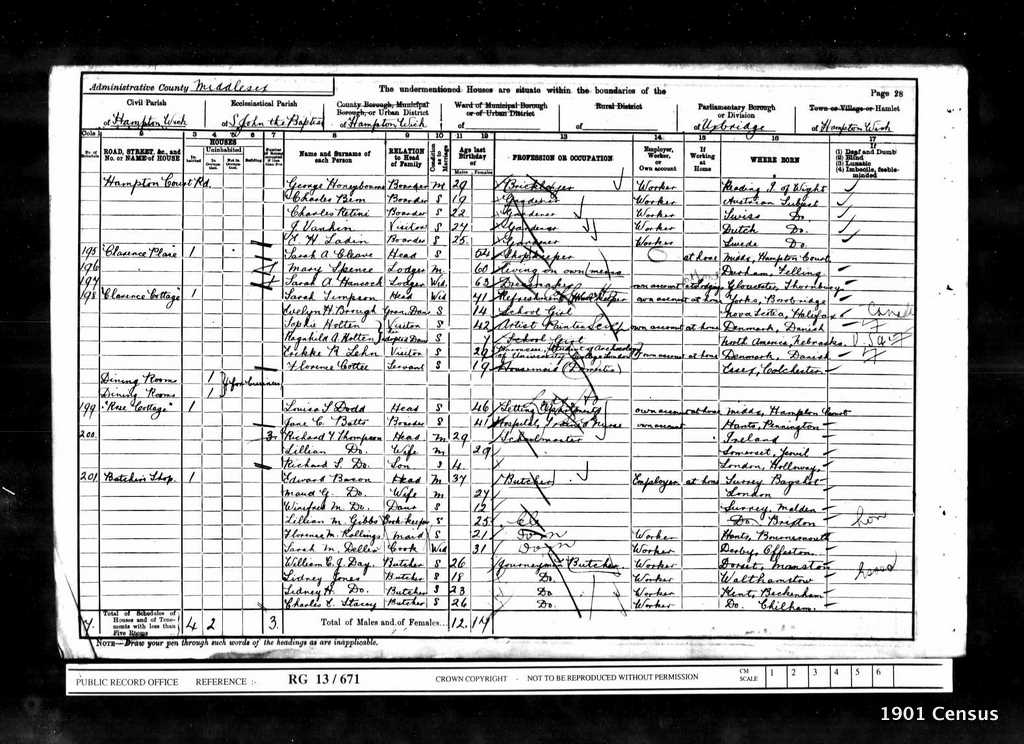 Administrative County Middlesex
The undermentioned Houses are situate within the boundaries of the
Page 28
Civil Parish
of Hampton Wick
Ecclesiastical Parish
of S. John the Baptist
County Borough, Municipal Borough, or Urban District
of Hampton Wick
Ward of Municipal Borough or of Urban District
of
Rural District
of
Parliamentary Borough or Division
of Uxbridge
Town or Village or Hamlet
of Hampton Wick
Cols 1 3 4 5 6 7 8 9 10 11 12 13 14 15 16 17
ROAD, STREET, &c., and No. or NAME of HOUSE
HOUSES
Uninhabited
Name and Surname of each Person
RELATION to Head of Family
Condition as to Marriage
Age last Birthday of
Males Females
PROFESSION OR OCCUPATION
Employer, Worker, or Own account
If Working at Home
WHERE BORN
If (1) Deaf and Dumb (2) Blind (3) Lunatic (4) Imbecile, feeble-minded
Hampton Court Rd. George Honeybourne Boarder M 29 Bricklayer Worker Reading I. of Wight
Charles Bim Boarder S 19 Gardener Worker Austrian Subject
Charles Retini Boarder S 22 Gardener Worker Swiss Do.
J Vankin Visitor S 24 Gardener Worker Dutch Do.
C H Ladin Boarder S 25 Gardener Worker Swede Do.
195 Clarence Place 1 Sarah A Cleave Head S 54 Shopkeeper at home Midds, Hampton Court
196 Mary Spence Lodger M 60 Living on own means Durham, Felling
197 Sarah A Hancock Lodger Wid 63 Dressmaker own account Gloucester, Thornbury
198 "Clarence Cottage" 1 Sarah Simpson Head Wid 41 Refreshment own account at home Yorks, Borobridge
Evelyn H. Brough Gran. Dau S 14 School Girl Nova Scotia, Halifax Canada
Sophie Holten Visitor S 42 Artist Painter Sculp own account at home Denmark, Danish
Ragnhild A. Holten adopted Daur S 7 School Girl North America, Nebraska
R Lehn Visitor S 29 Student of Archaeology at University College London own account at home Denmark, Danish
Florence Cottee Servant S 19 Housemaid (Domestic) Essex, Colchester
Dining Rooms 1
Dining Rooms 1
199 "Rose Cottage" 1 Louisa S Dodd Head S 46 Letting Apartments own account at home Midds, Hampton Court
Jane C. Batts Boarder S 41 Hospital Trained Nurse own account Hants, Pennington
200 3 Richard Y Thompson Head M 29 Schoolmaster Ireland
Lillian Do. Wife M 29 Somerset, Yeovil
Richard S. Do. Son S 4 London, Holloway
201 Butchers Shop. 1 Edward Bacon Head M 37 Butcher Employer at home Surrey Bagshot
Maud G. Do. Wife M 27 London
Winifred M. Do. Daur S 12 Surrey, Malden
Lillian M. Gibbs Book-keeper S 25 Do. Brixton
Florence M. Rollings Maid S 21 Worker Hants, Bournemouth
Sarah M. Dellis Cook Wid 31 Worker Derby,
William C. J. Day. Butcher S 26 Journeyman Butcher Worker Dorset, Manston
Sidney Jones Butcher S 18 Do. Worker Walthamstow
Sidney H. Do. Butcher S 23 Do. Worker Kent, Beckenham
Charles E. Stacey Butcher S 26 Do. Worker Do. Chilham.
7 Total of Schedules of Houses and of Tenements with less than Five Rooms 4 2 3 Total of Males and of Females... 12 17
NOTE—Draw your pen through such words of the headings as are inapplicable.
PUBLIC RECORD OFFICE REFERENCE :- RG 13/671 CROWN COPYRIGHT - NOT TO BE REPRODUCED WITHOUT PERMISSION CM SCALE 1 2 3 4 5 6
1901 Census